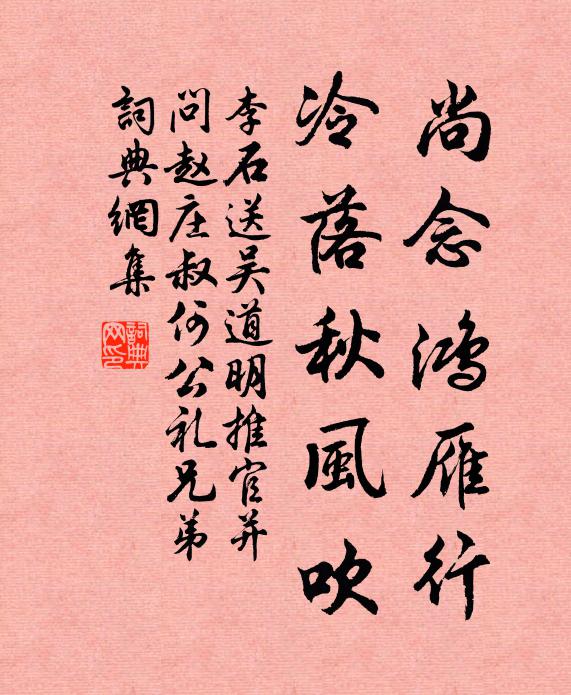 尚念鸿雁行
冷落秋風吹
李石送吴道明推官并
问赵庄叔何公礼兄弟
詞典網集
詞典
网印